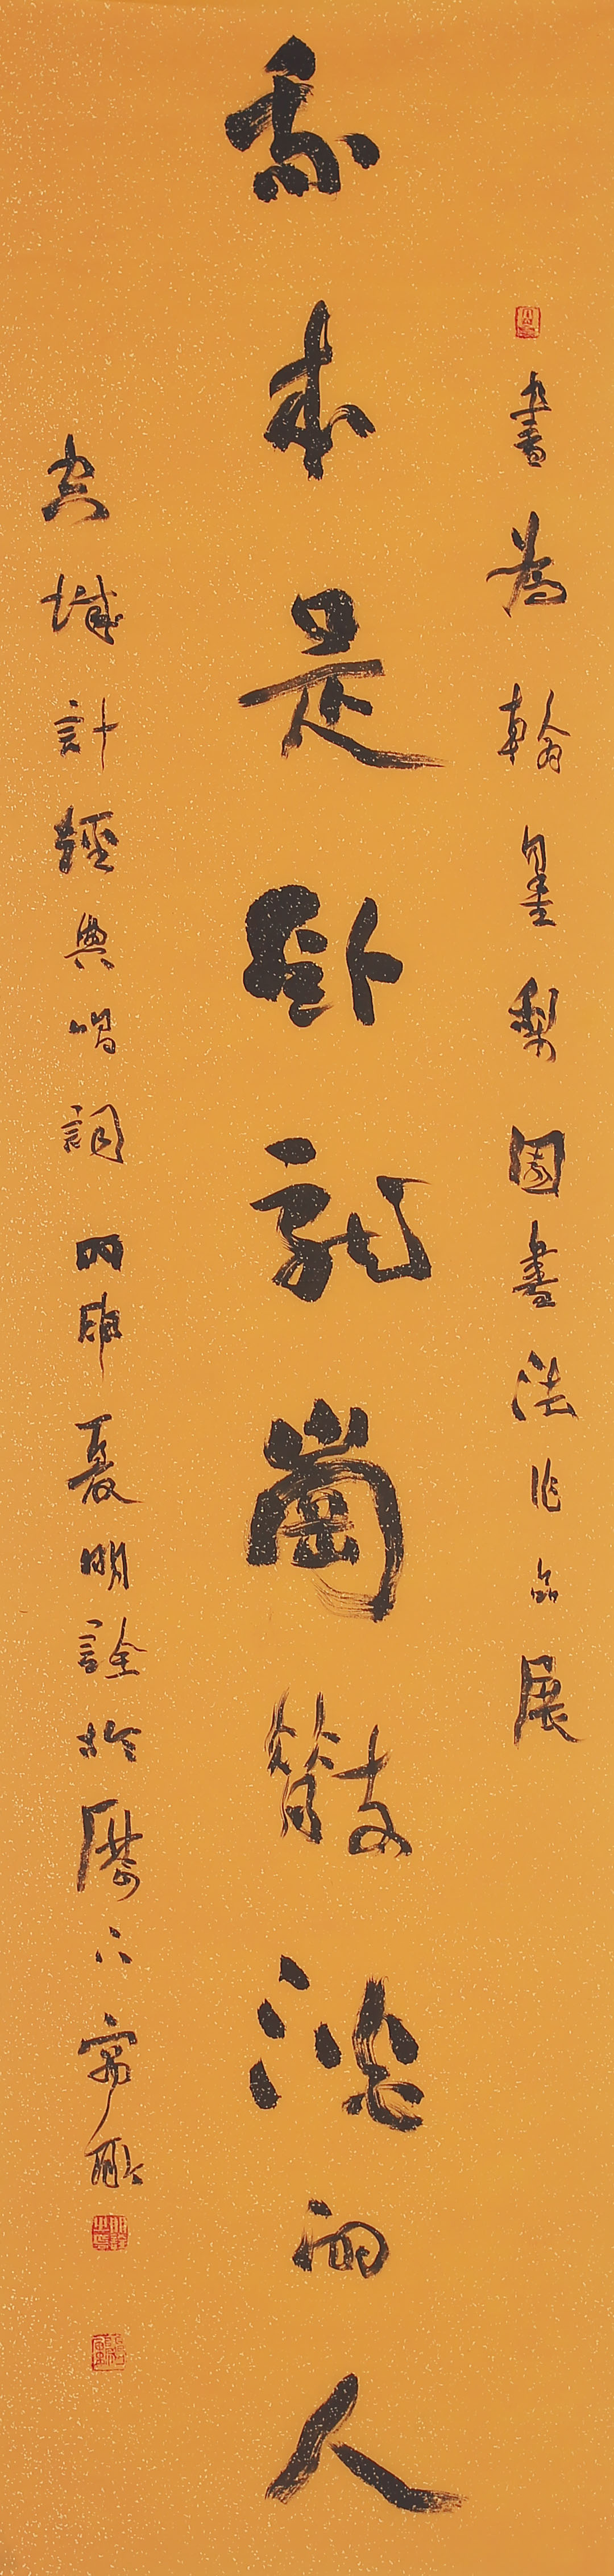 書為翰墨梨園書法作品展
我本是卧龍崗散淡的人
空城計經典唱詞丙申夏明詮於歷下